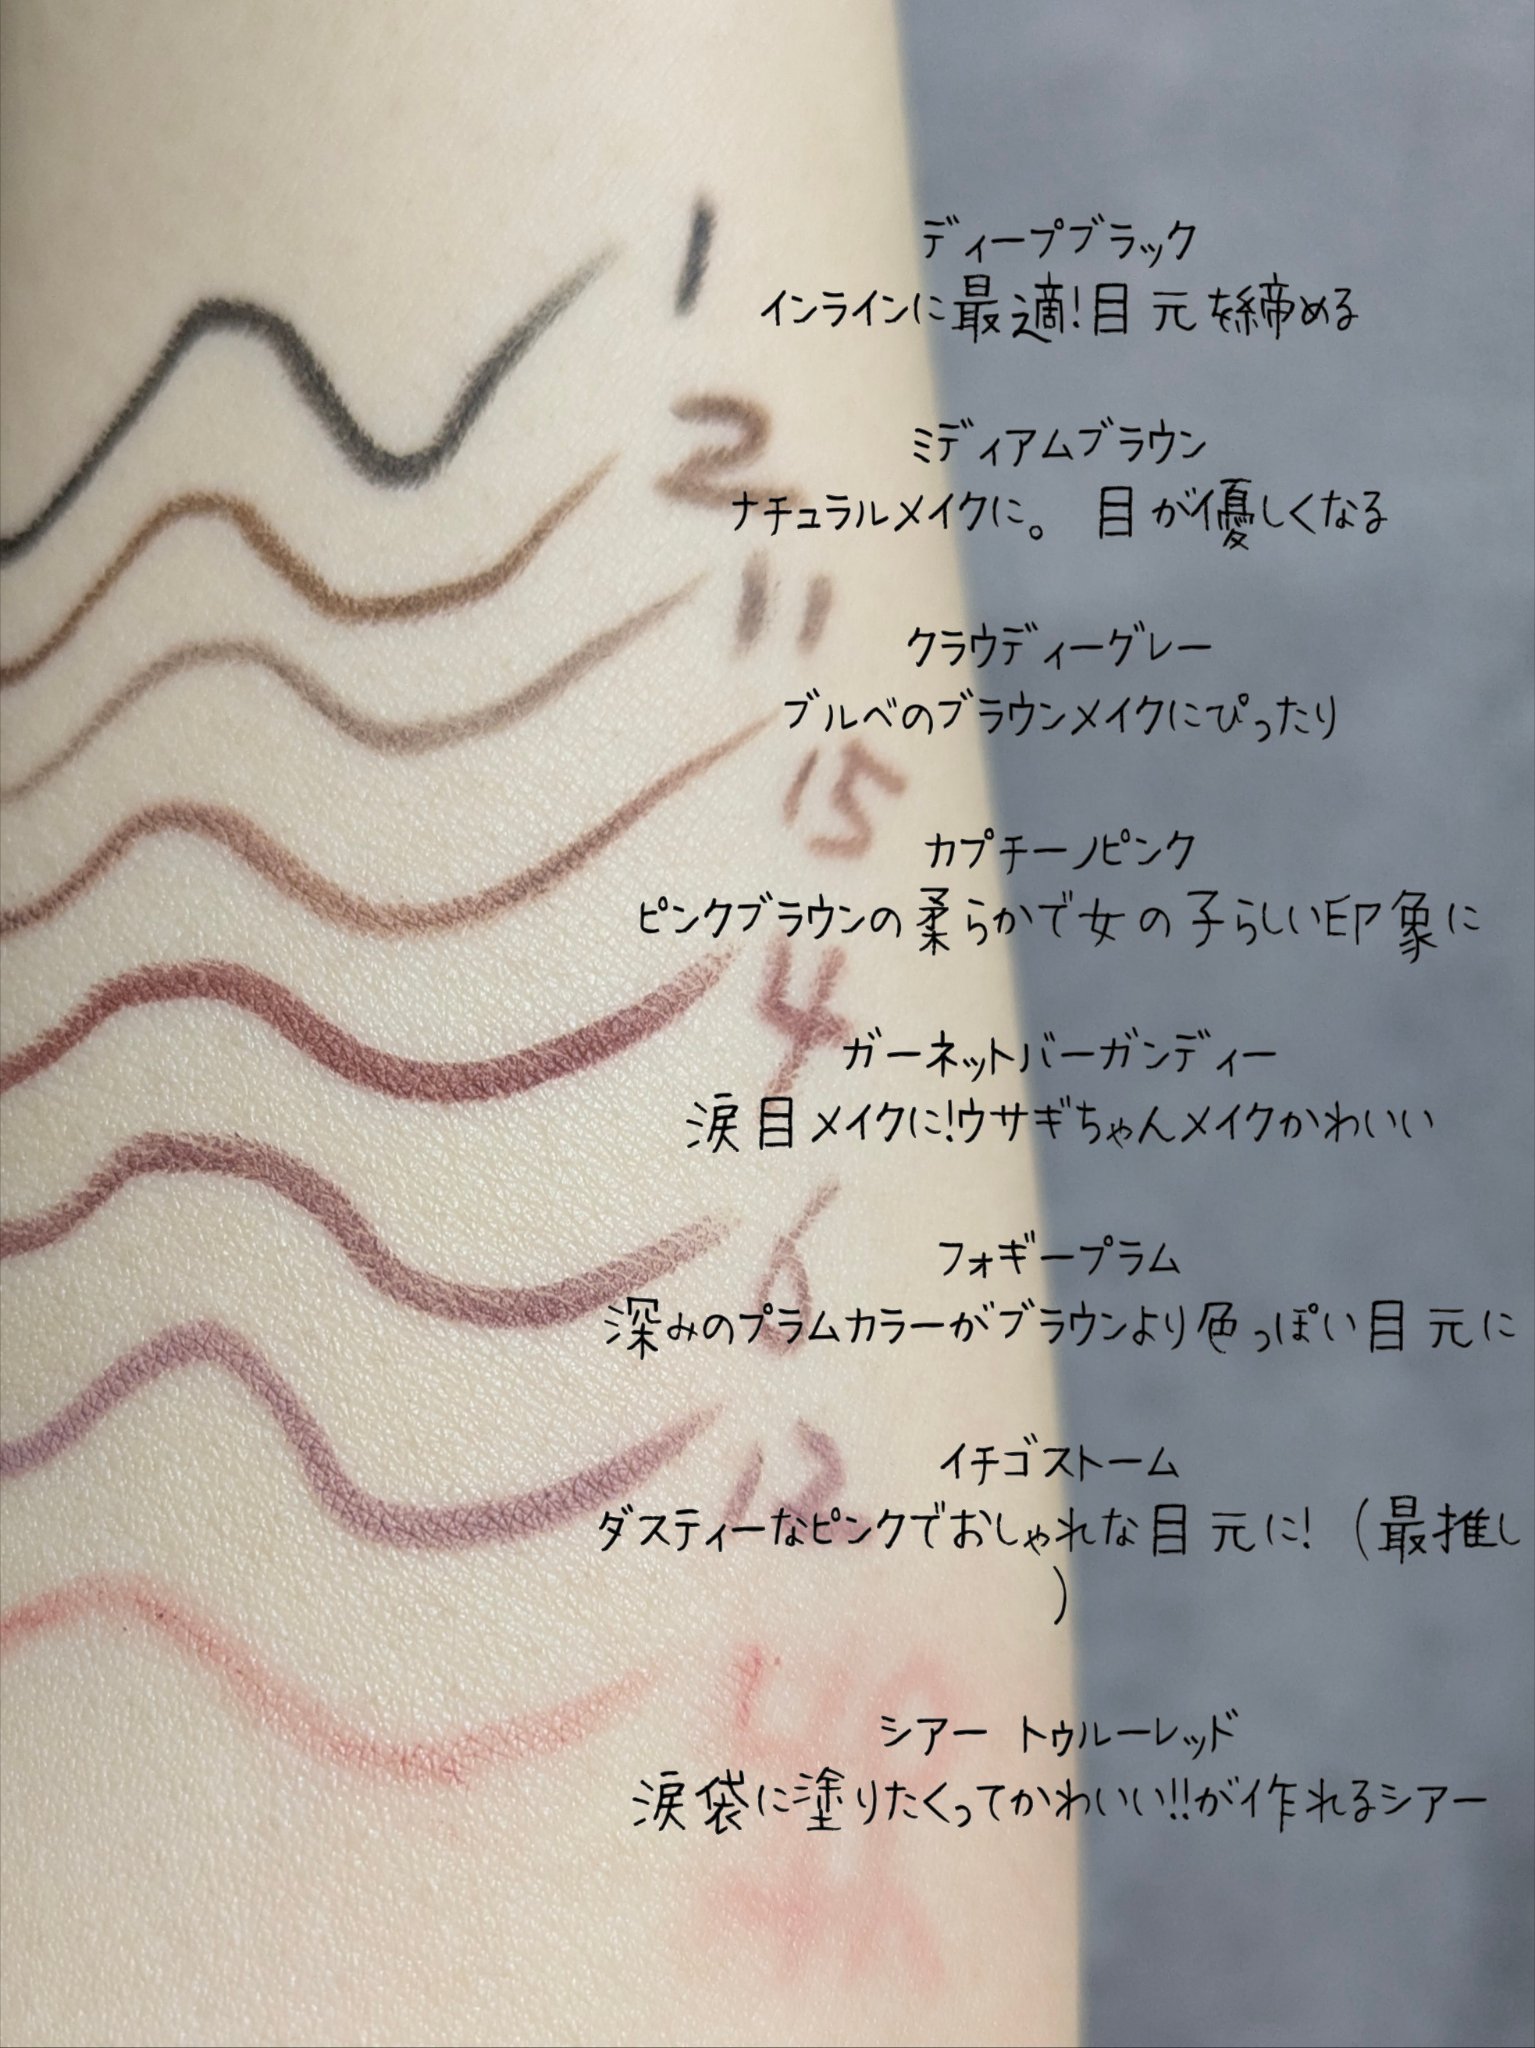 1
ディープブラック
インラインに最適!目元を締める
2
ミディアムブラウン
ナチュラルメイクに。 目が優しくなる
11
クラウディーグレー
ブルベのブラウンメイクにぴったり
15
カプチーノピンク
ピンクブラウンの柔らかで女の子らしい印象に
4
ガーネットバーガンディー
涙目メイクに!ウサギちゃんメイクかわいい
6
フォギープラム
深みのプラムカラーがブラウンより色っぽい目元に
12
イチゴストーム
ダスティーなピンクでおしゃれな目元に! (最推し
)
シアー トゥルーレッド
涙袋に塗りたくってかわいい!!が作れるシアー